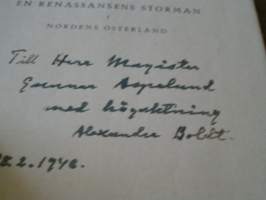 EN RENÄSSANSENS STORMAN
I
NORDENS ÖSTERLAND
Till Herr Magister
Gunnar Aspelund
med högaktning
Alexander
.2.1946.